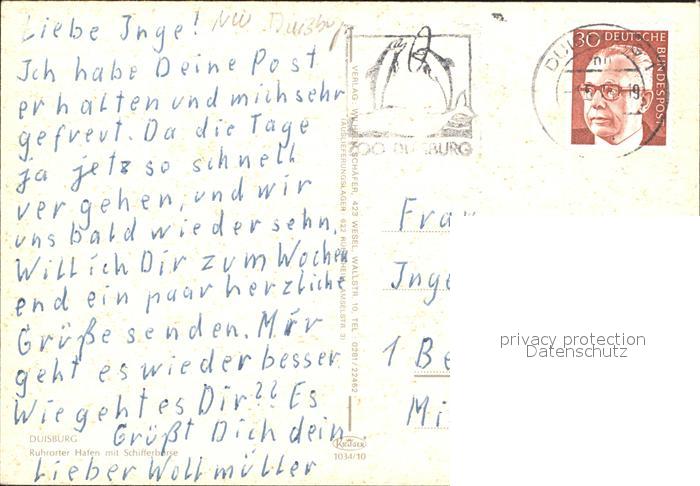 Liebe Inge!
Ich habe Deine Post
erhalten und mich sehr
gefreut. Da die Tage
ja jetz so schnell
vergehen, und wir
uns bald wiedersehn,
Will ich Dir zum Wochen
end ein paar herzliche
Grüße senden. Mir
geht es wieder besser
Wie geht es Dir?? Es
Grüßt Dich dein
Lieber Wollmüller
DUISBURG
Ruhrorter Hafen mit Schifferbörse
VERLAG SCHÄFER, 423 WESEL, WALLSTR. 10, TEL. 0281/22462
KRÜGER
1034/10
ZOO DUISBURG
30 DEUTSCHE
BUNDESPOST
Frau
Inge
1 Be
Mi
privacy protection
Datenschutz